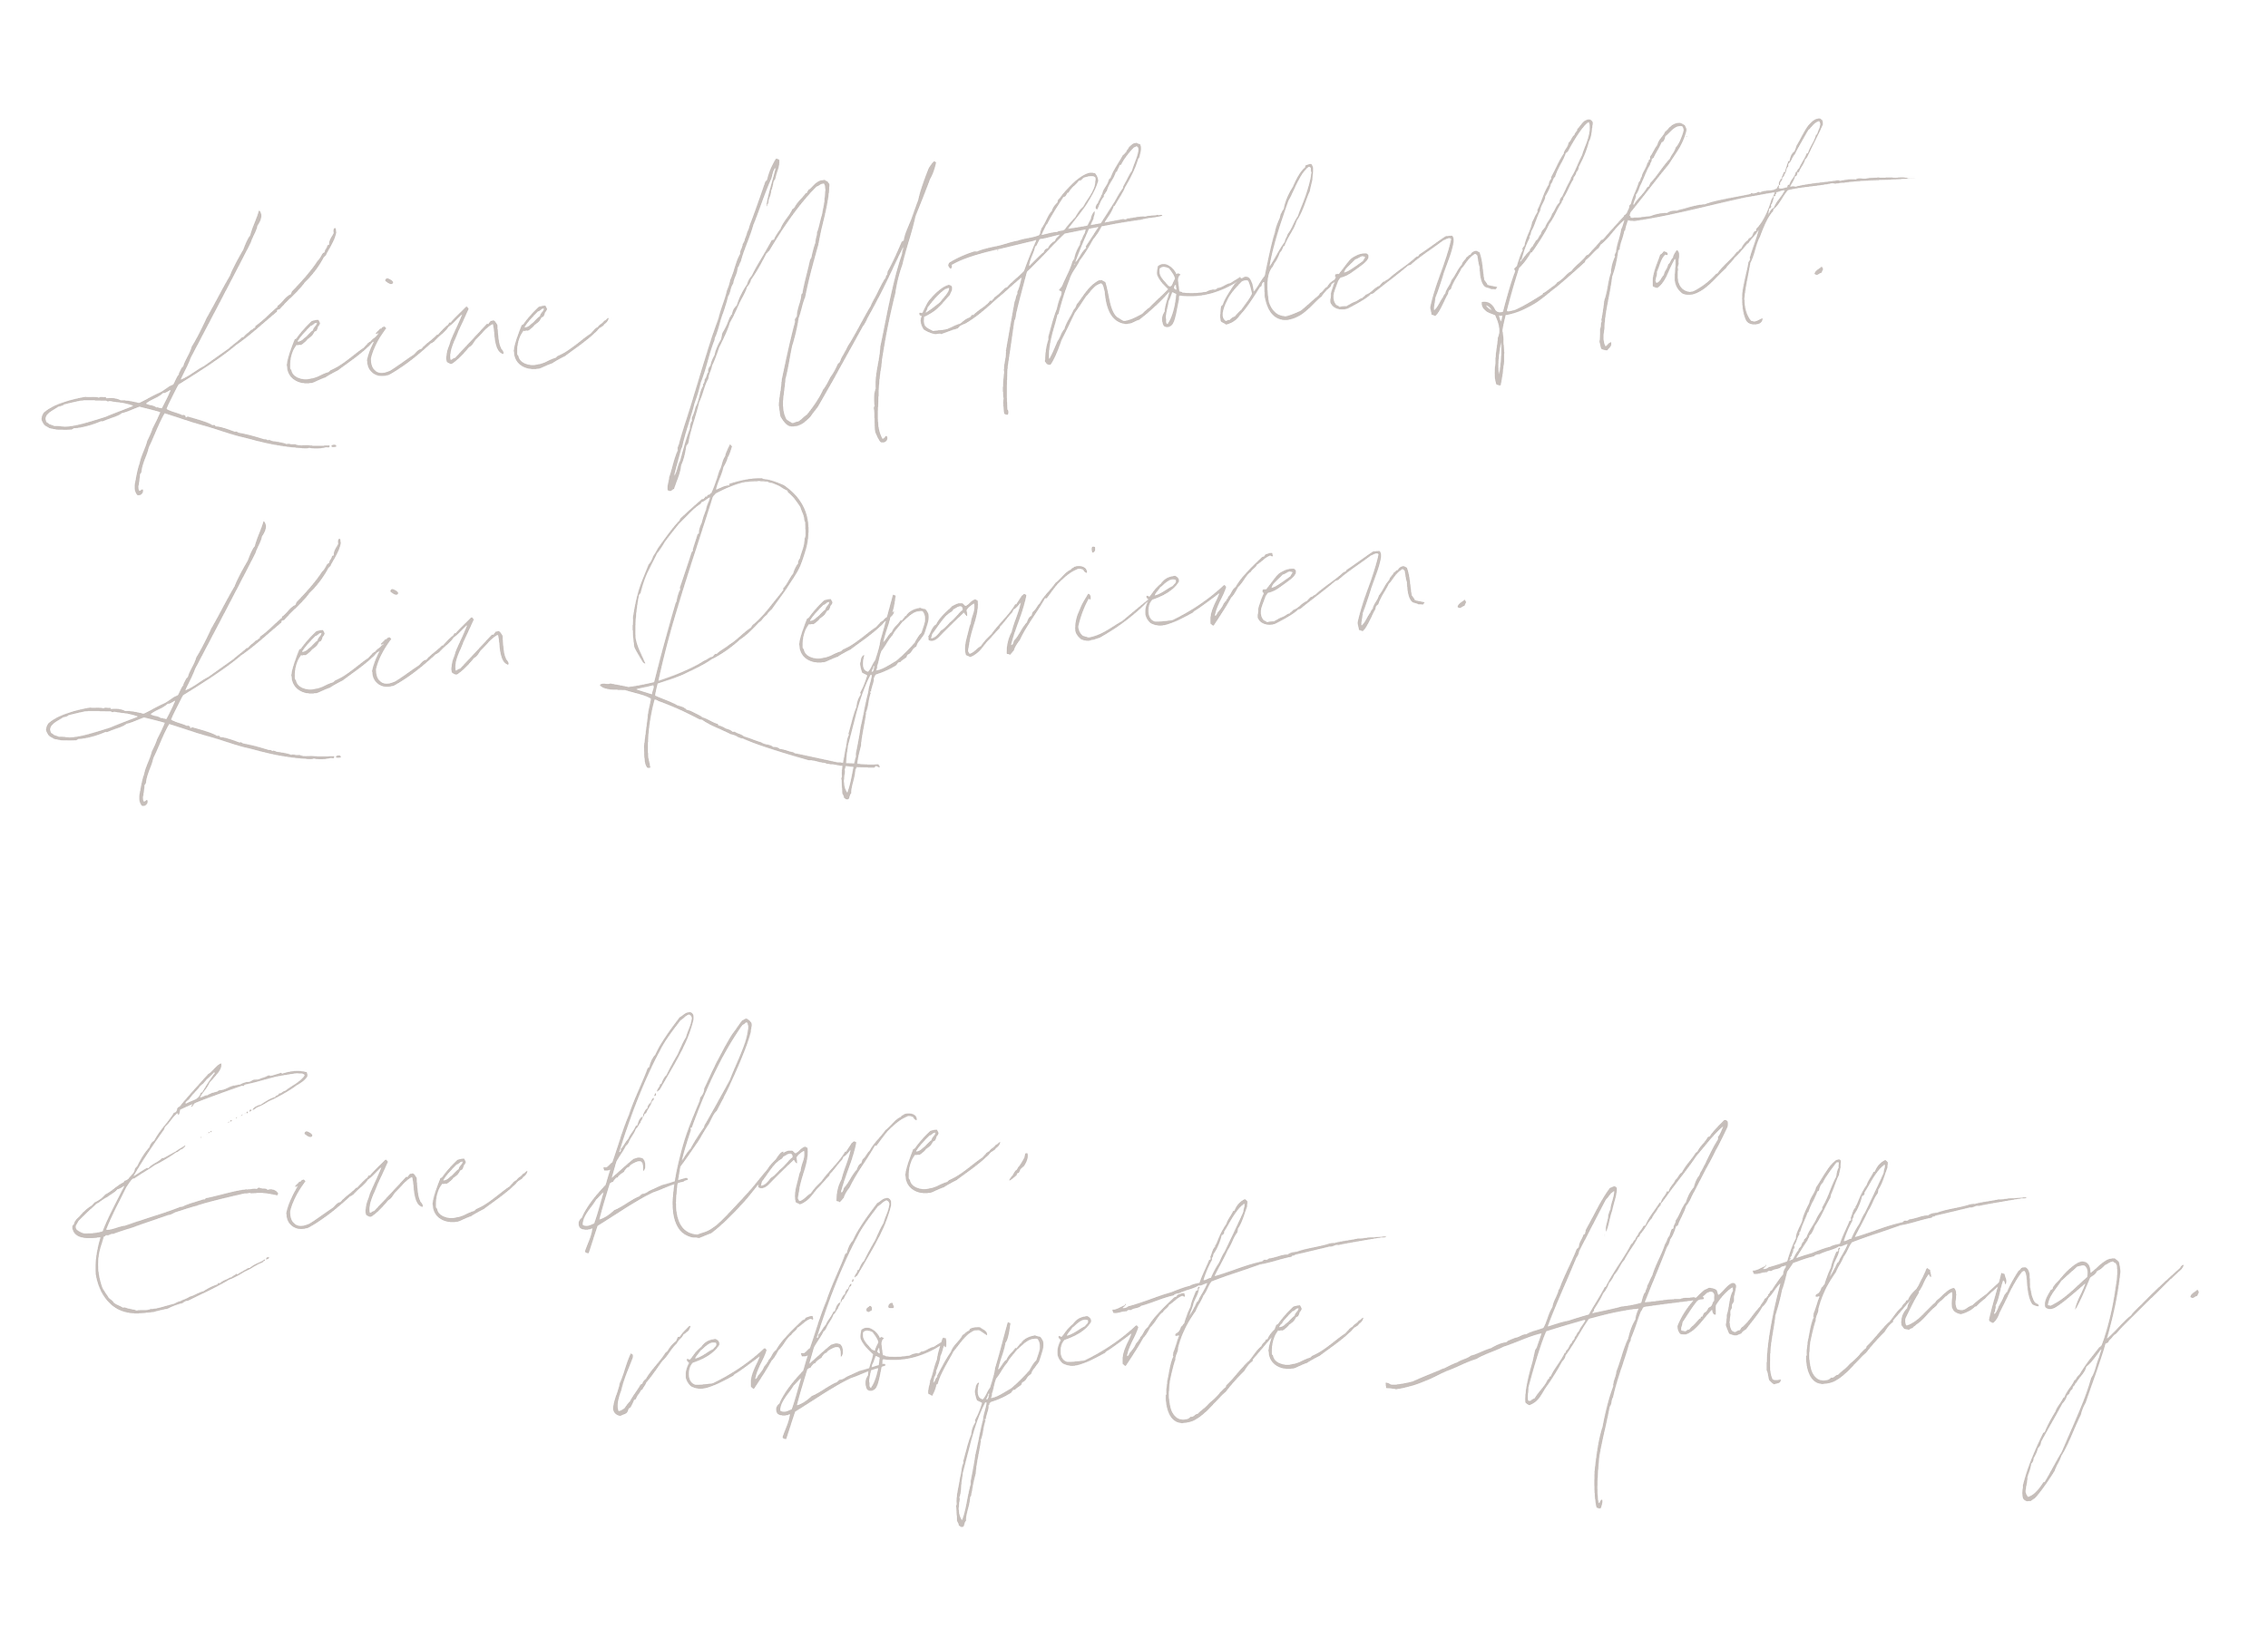 Keine Methodenflut.
Kein Reparieren.
Eine klare,
verkörperte Haltung.